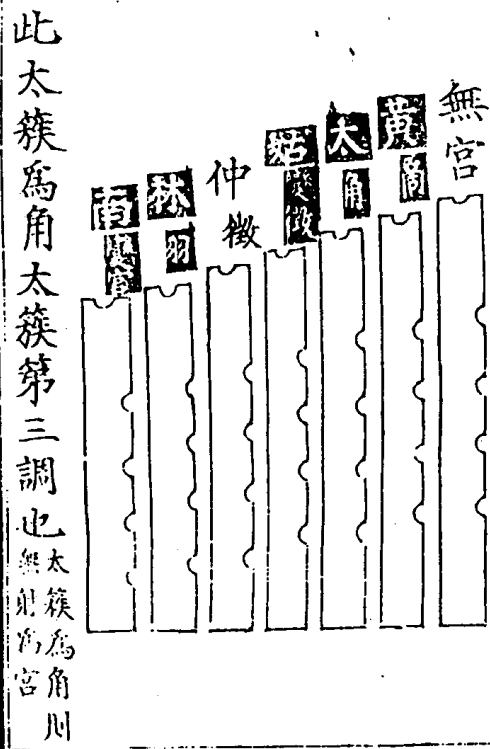 無宮
黃商
太角
姑變徵
仲徵
林羽
南變宮
此太簇爲角太簇第三調也
太簇爲角則
無射爲宮